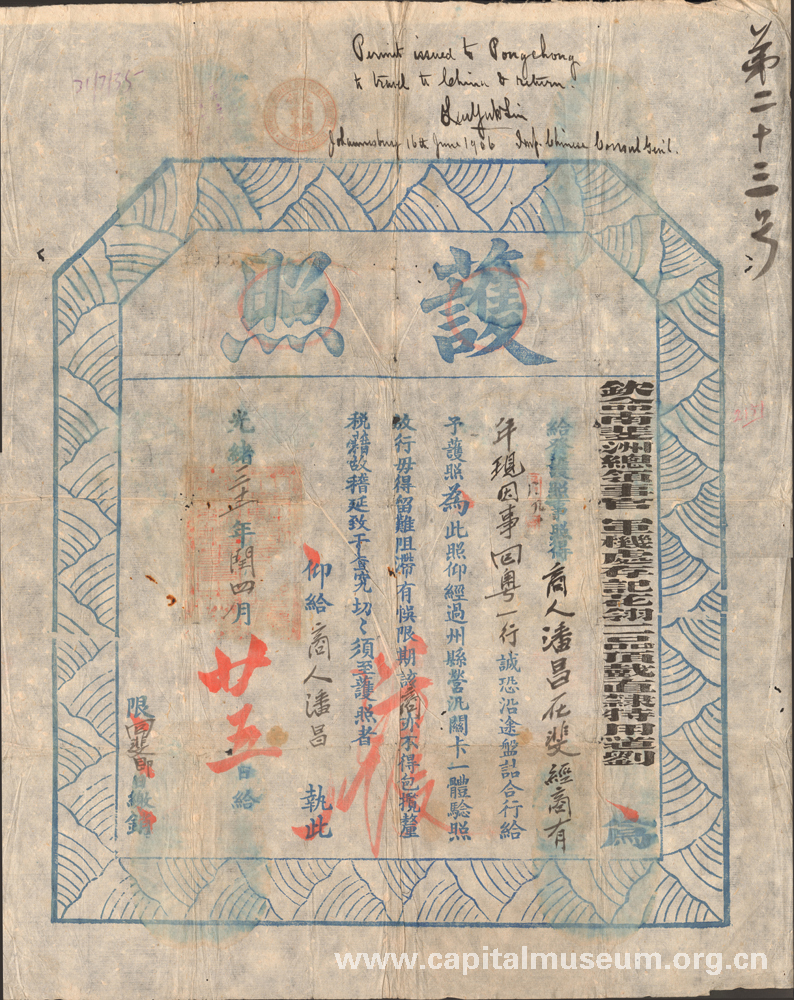 Permit issued to Pongchong
to travel to China & return.
Johannesburg 16th June 1906 Imp. Chinese Consul Genl.
第二十三号
護照
欽命南斐洲總領事官 軍機處存記花翎二品頂戴直隸特用道劉 爲
給發護照事照得商人潘昌在斐經商有
年現因事回粵一行誠恐沿途盤詰合行給
予護照為此照仰經過州縣營汛關卡一體驗照
放行毋得留難阻滯有悞限期該商亦不得包攬釐
稅藉故稽延致干查究切々須至護照者
仰給商人潘昌 執此
光緒三十二年閏四月廿五日給
限回斐即日繳銷
www.capitalmuseum.org.cn